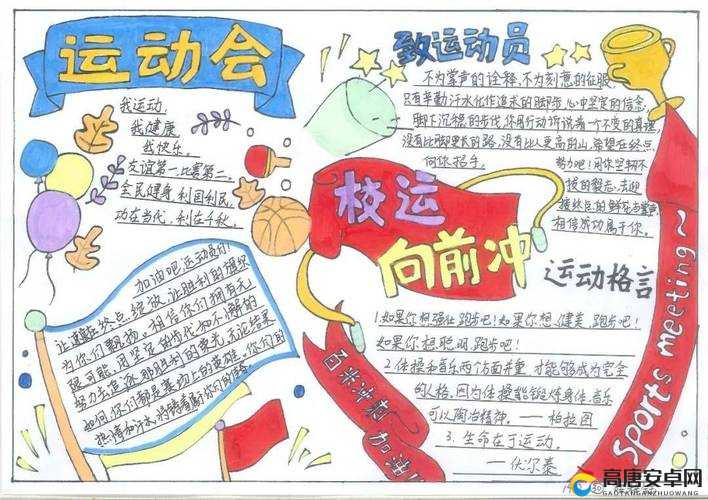 运动会
我运动
我健康
我快乐.
友谊第一,比赛第二,
全民健身,利国利民,
功在当代,利在千秋.
致运动员
不为掌声的诠释,不为刻意的征服,
只有辛勤汗水化作追求的脚步,心中坚定的信念,
脚下沉稳的步伐,你用行动诉说着一个不变的真理,
没有比脚更长的路,没有比人更高的山,希望在终点
向你招手,
努力吧!用你坚韧不
拔的毅志,去迎
接终点的鲜花与掌声,
相信成功属于你.
校运
向前冲
加油吧,运动员们!
让
终点,绽放,让胜利的旗帜
为你们飘扬,相信你们拥有无
限可能,用坚定的步伐和不懈的
努力去
那胜利的荣光,无论结果
如何,你们都是赛场上的英雄,你们的
热情和汗水,将
运动格言
1.如果你想强壮,跑步吧!如果你想健美,跑步吧!
如果你想聪明,跑步吧!
2.体操和音乐两个方面并重,才能够成为完全
的人格,因为体操能锻炼身体,音乐
可以陶冶精神。——柏拉图
3.生命在于运动.
——伏尔泰
百米冲刺 加油!
sports meeting~
高唐安卓网
GAOTANGANZHUOWANG